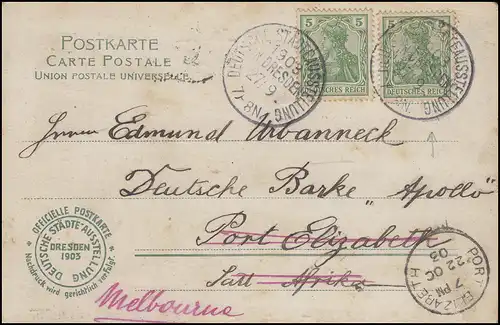 POSTKARTE
CARTE POSTALE
UNION POSTALE UNIVERSELLE
5 5
DEUTSCHES REICH DEUTSCHES REICH
DEUTSCHE STÄDTEAUSSTELLUNG
1903
DRESDEN
27/9
8N
Herrn Edmund Arneck
Deutsche Barke "Apollo"
Port Elizabeth
Sütt Afrika
Melbourne
OFFICIELLE POSTKARTE
DEUTSCHE STÄDTE-AUSSTELLUNG
DRESDEN
1903
Nachdruck wird gerichtlich verfolgt.
PORT ELIZABETH
7 PM
22 OC
03